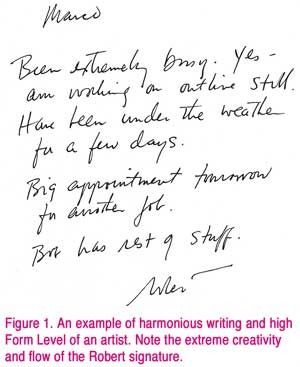 Marco
Been extremely busy. Yes -
am working on outline still.
Have been under the weather
for a few days.
Big appointment tomorrow
for another job.
Bob has rest of stuff.
Figure 1. An example of harmonious writing and high
Form Level of an artist. Note the extreme creativity
and flow of the Robert signature.